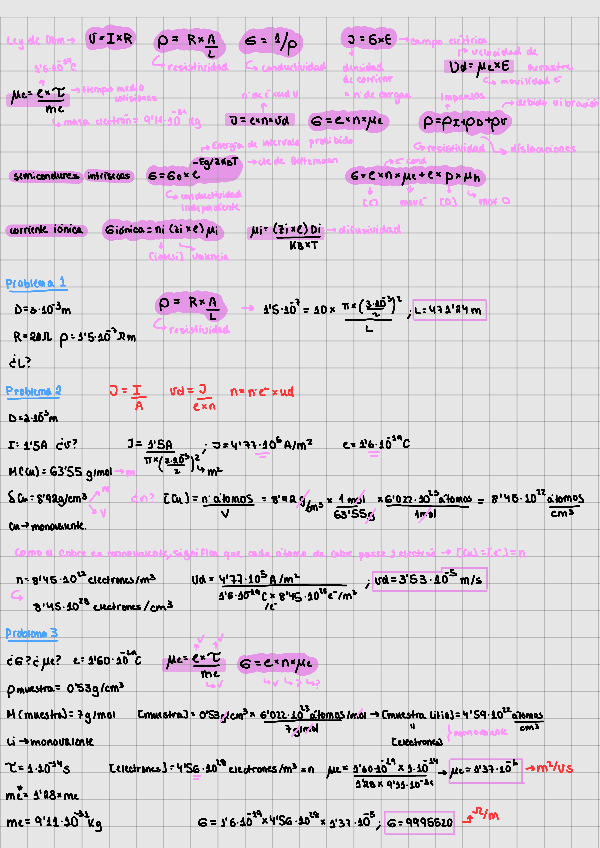 Ley de Ohm → V = I×R   ρ = R×A/L   σ = 1/ρ   J = σ×E → campo eléctrico
resistividad   conductividad   densidad de corriente   Vd = μe×E   velocidad de arrastre
1'6·10⁻¹⁹C   movilidad e⁻
μe = e×τ/me → tiempo medio colisiones   nº de e⁻ x ud V   = nº de cargas   impurezas   debido vibración
masa electrón = 9'11·10⁻³¹ Kg   J = e×n×vd   σ = e×n×μe   ρ = ρI+ρD+ρV
Energía de intervalo prohibido   resistividad   dislocaciones
semiconductores intrísecos   σ = σ0×e^(-Eg/2KBT) → cte de Boltzmann   σ = e×n×μe+e×p×μh
conductividad   move⁻   mov
corriente iónica   σiónica = ni (zi×e) μi   μi = (zi×e)Di/KB×T → difusividad
valencia
Problema 1
D=2·10⁻³m   ρ = R×A/L → 1'5·10⁻⁷ = 10× π×(2·10⁻³/2)²/L ; L=471'24m
R=20Ω ρ=1'5·10⁻⁷Ωm   resistividad
¿L?
Problema 2   J = I/A   vd = J/e×n   n = n·e⁻×vd
D=2·10⁻³m
I: 1'5A ¿v?   J = 1'5A/π×(2·10⁻³/2)² ; J=4'77·10⁵A/m²   e=1'6·10⁻¹⁹C
m²
M(Cu) = 63'55 g/mol → m
δCu=8'92g/cm³   m   V   ¿n?   [Cu] = nº átomos/V = 8'92 g/cm³ × 1mol/63'55g × 6'022·10²³átomos/1mol = 8'45·10²² átomos/cm³
Cu → monovalente.
Como el cobre es monovalente, significa que cada átomo de cobre posee 1 electrón → [Cu]=[e⁻]=n
n = 8'45·10²² electrones/m³   Vd = 4'77·10⁵A/m²/1'6·10⁻¹⁹C × 8'45·10²⁸e⁻/m³ ; vd=3'53·10⁻⁵m/s
8'45·10²⁸ electrones/cm³   /e⁻
Problema 3
¿σ? ¿μe? e=1'60·10⁻¹⁹C   μe = e×τ/me   σ = e×n×μe
ρmuestra = 0'53g/cm³
M(muestra) = 7g/mol   [muestra] = 0'53g/cm³ × 6'022·10²³átomos/mol/7g/mol → [muestra litio] = 4'59·10²² átomos/cm³
Li → monovalente   [electrones]   monovalente
τ = 1·10⁻¹⁴s   [electrones] = 4'56·10²⁸ electrones/m³ = n   μe = 1'60·10⁻¹⁹×1·10⁻¹⁴/1'28×9'11·10⁻³¹ → μe = 1'37·10⁻³ → m²/Vs
me* = 1'28×me
me = 9'11·10⁻³¹Kg   σ = 1'6·10⁻¹⁹×4'56·10²⁸×1'37·10⁻³ ; σ=9995520 → Ω/m